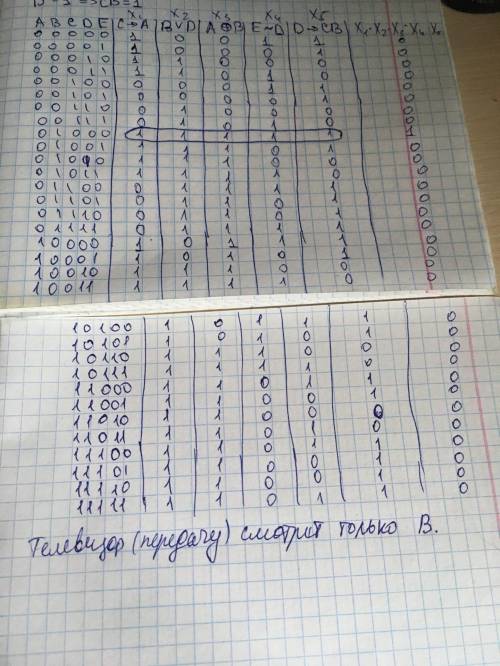 => CB=1
X₁ X₂ X₃ X₄ X₅
A B C D E C→A B∨D A⊕B E~D D→CB X₁·X₂·X₃·X₄·X₅
0 0 0 0 0 1 0 0 1 1 0
0 0 0 0 1 1 0 0 0 1 0
0 0 0 1 0 1 1 0 0 0 0
0 0 0 1 1 1 1 0 1 0 0
0 0 1 0 0 0 0 0 1 1 0
0 0 1 0 1 0 0 0 0 1 0
0 0 1 1 0 0 1 0 0 0 0
0 0 1 1 1 0 1 0 1 0 0
0 1 0 0 0 1 1 1 1 1 1
0 1 0 0 1 1 1 1 0 1 0
0 1 0 1 0 1 1 1 0 0 0
0 1 0 1 1 1 1 1 1 0 0
0 1 1 0 0 0 1 1 1 1 0
0 1 1 0 1 0 1 1 0 1 0
0 1 1 1 0 0 1 1 0 1 0
0 1 1 1 1 0 1 1 1 1 0
1 0 0 0 0 1 0 1 1 1 0
1 0 0 0 1 1 0 1 0 1 0
1 0 0 1 0 1 1 1 0 0 0
1 0 0 1 1 1 1 1 1 0 0
1 0 1 0 0 1 0 1 1 1 0
1 0 1 0 1 1 0 1 0 1 0
1 0 1 1 0 1 1 1 0 0 0
1 0 1 1 1 1 1 1 1 0 0
1 1 0 0 0 1 1 0 1 1 0
1 1 0 0 1 1 1 0 0 1 0
1 1 0 1 0 1 1 0 0 0 0
1 1 0 1 1 1 1 0 1 0 0
1 1 1 0 0 1 1 0 1 1 0
1 1 1 0 1 1 1 0 0 1 0
1 1 1 1 0 1 1 0 0 1 0
1 1 1 1 1 1 1 0 1 1 0
Телевизор (передачу) смотрит только В.